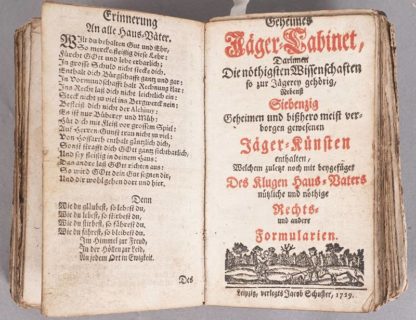 Erinnerung
An alle Haus-Väter.
Wilt du behalten Gut und Ehr,
So mercke fleißig diese Lehr:
Fürchte GOtt und lebe erbarlich;
In grosse Schuld nicht stecke dich.
Enthalt dich Bürgschafft gantz und gar:
In Vormundschafft halt Rechnung klar:
Ins Recht laß dich nicht leichtlich ein:
Steck nicht zu viel ins Bergwerck nein:
Befleiß dich nicht der Alchimey:
Es ist nur Büberey und
Hüt dich mit Fleiß vor grossem Spiel:
Auf Herren-Gunst trau nicht zu viel:
Von Hoffarth enthalt gäntzlich dich,
So
Und sey fleißig in deinem Haus:
Das andre laß GOtt richten aus:
So wird GOtt dein Gut segnen dir,
Und dir wohl gehen dort und hier.
Denn
Wie du glaubest, so lebest du,
Wie du lebest, so stirbest du,
Wie du stirbest, so fährest du,
Wie du fährest, so bleibest du.
Im Himmel zur Freud,
In der Höllen zur Leid,
An jedem Ort in Ewigkeit.
Des
Geheimes
Jäger-Cabinet,
Darinnen
Die nöthigsten Wissenschaften
so zur Jägerey gehörig,
Nebenst
Siebenzig
Geheimen und bißhero meist ver-
borgen gewesenen
Jäger-Künsten
enthalten,
Welchem zuletzt noch mit beygefüget
Des Klugen Haus-Vaters
nützliche und nöthige
Rechts-
und andere
Formularien.
Leipzig, verlegts Jacob Schuster, 1729.